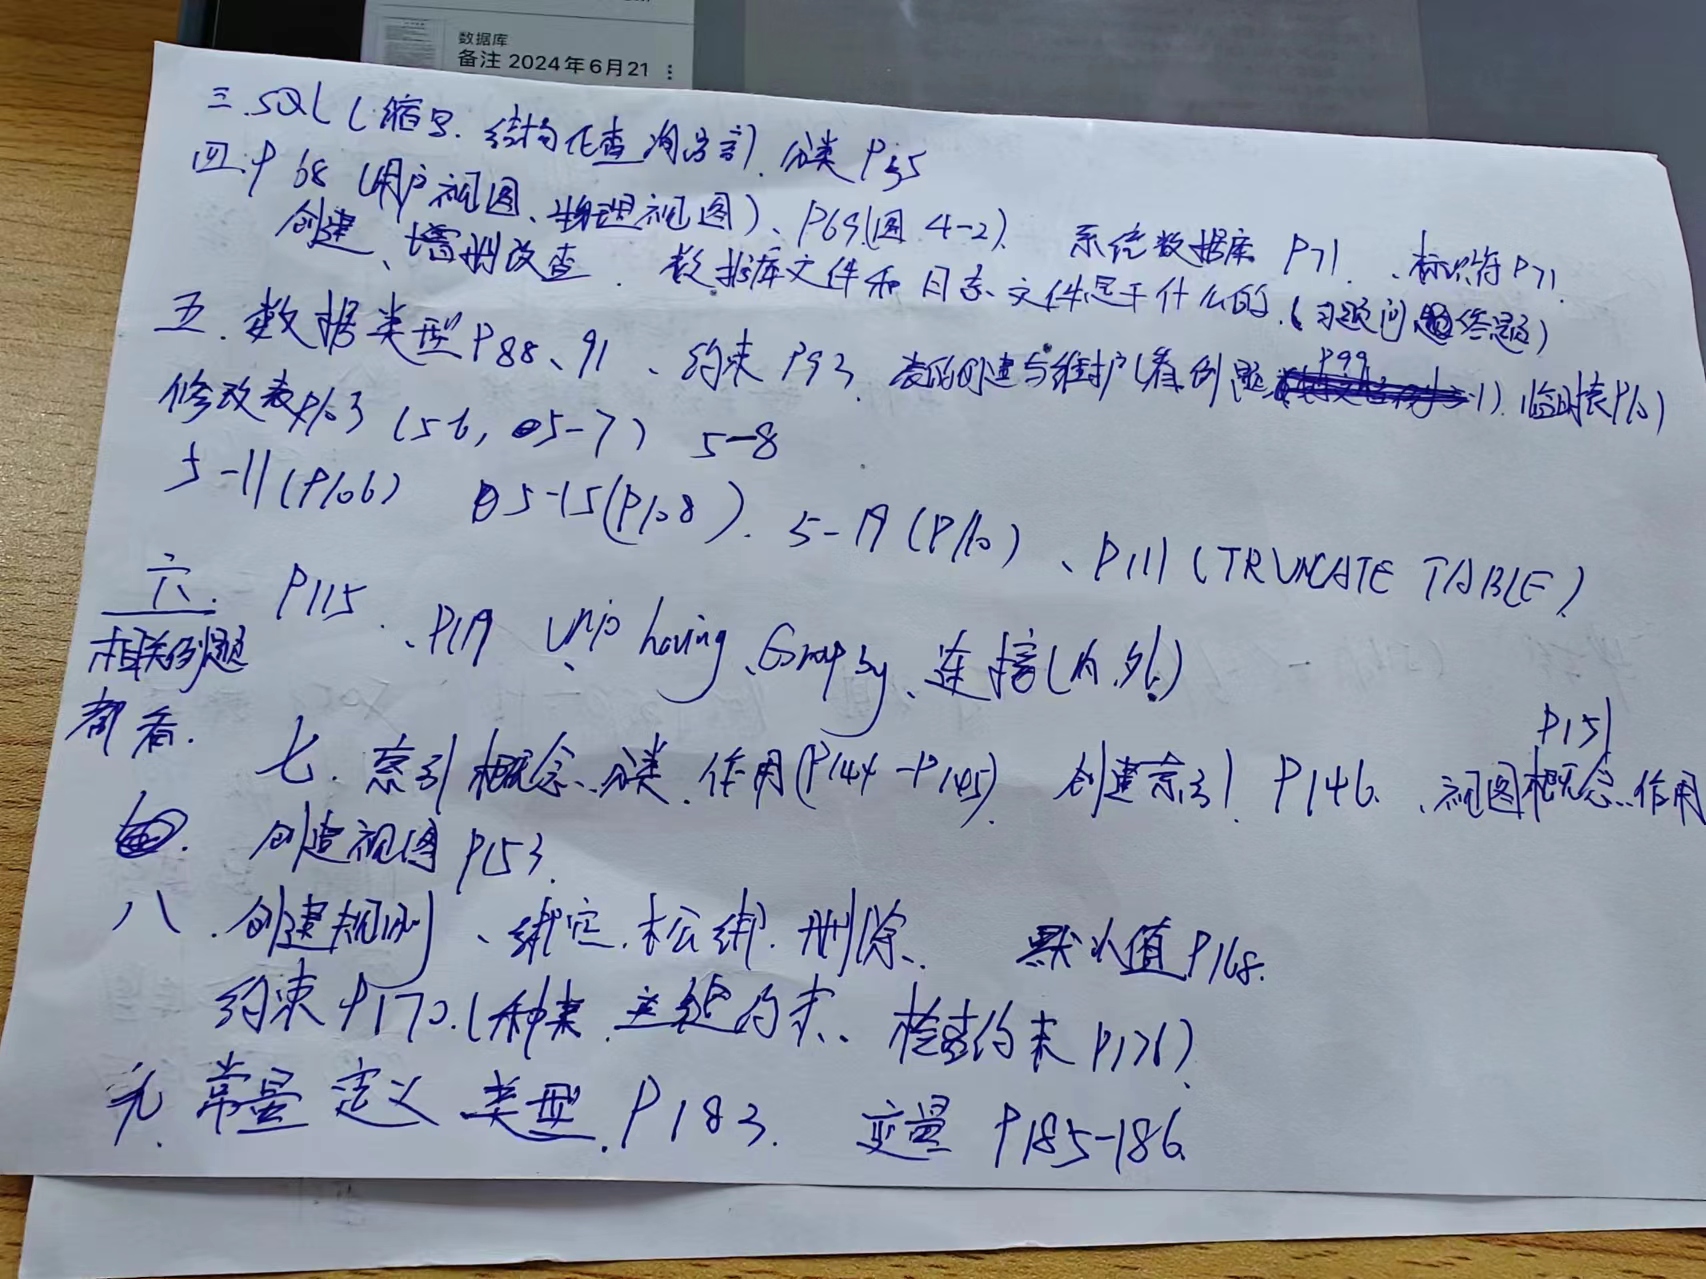 数据库
备注 2024年6月21
三.SQL(缩写.结构化查询语言).分类P55
四.P68(用户视图、物理视图)、P69(图4-2). 系统数据库 P71.、标识符P71.
创建、增删改查. 数据库文件和日志文件是干什么的.(习题问答题)
五.数据类型P88、91、约束P93、表的创建与维护(看例题P99).临时表P101
修改表P103(5-6,5-7) 5-8
5-11(P106) 5-15(P108). 5-19(P110)、P111(TRUNCATE TABLE)
六. P115.、P119 Unio、having、Group by、连接(内.外)
相关例题
都看.
七.索引概念、分类.作用(P144-P145). 创建索引 P146.、视图概念、作用
P151
创建视图P153.
八.创建规则、绑定.松绑.删除. 默认值P168.
约束P170.(种类.主键约束、检查约束P176).
九.常量定义类型.P183. 变量 P185-186.